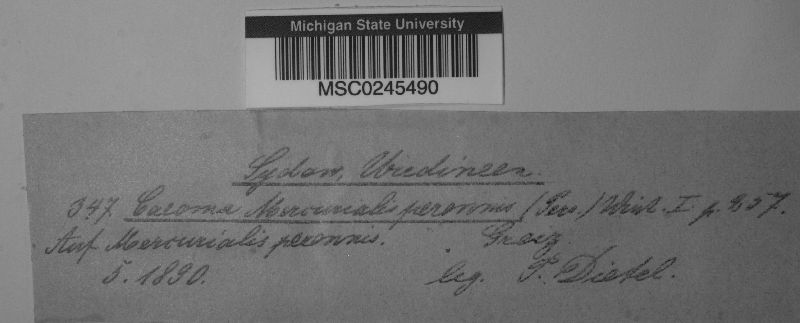 Michigan State University
MSC0245490
Sydow, Uredineen.
347. Caeoma Mercurialis perennis (Pers.) Wint. I. p. 257.
Auf Mercurialis perennis. Greiz.
5. 1890. leg. P. Dietel.